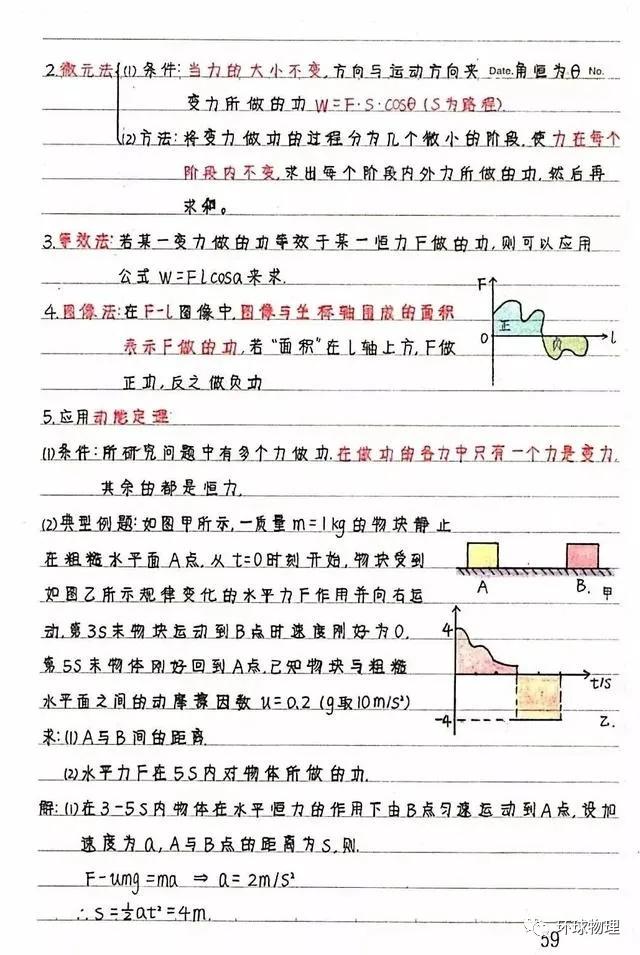 2.微元法 (1)条件:当力的大小不变,方向与运动方向夹 Date. 角恒为θ No.
变力所做的功 W=F·S·cosθ (S为路程).
(2)方法:将变力做功的过程分为几个微小的阶段,使力在每个
阶段内不变,求出每个阶段内外力所做的功,然后再
求和。
3.等效法:若某一变力做的功等效于某一恒力F做的功,则可以应用
公式 W=Flcosa来求.
4.图像法:在F-l图像中,图像与坐标轴围成的面积
表示F做的功,若"面积"在l轴上方,F做
正功,反之做负功
F
正
0
负
l
5.应用动能定理
(1)条件:所研究问题中有多个力做功.在做功的各力中只有一个力是变力.
其余的都是恒力.
(2)典型例题:如图甲所示,一质量m=1kg的物块静止
在粗糙水平面A点,从t=0时刻开始,物块受到
如图乙所示规律变化的水平力F作用并向右运
动,第3S末物块运动到B点时速度刚好为0,
第5S末物体刚好回到A点,已知物块与粗糙
水平面之间的动摩擦因数u=0.2 (g取10m/s²)
求:(1)A与B间的距离.
(2)水平力F在5S内对物体所做的功.
A
B.
甲
4
t/s
-4
乙.
解:(1)在3-5S内物体在水平恒力的作用下由B点匀速运动到A点,设加
速度为a,A与B点的距离为S,则.
F-umg=ma ⇒ a=2m/s²
∴S=½at²=4m.
环球物理
59